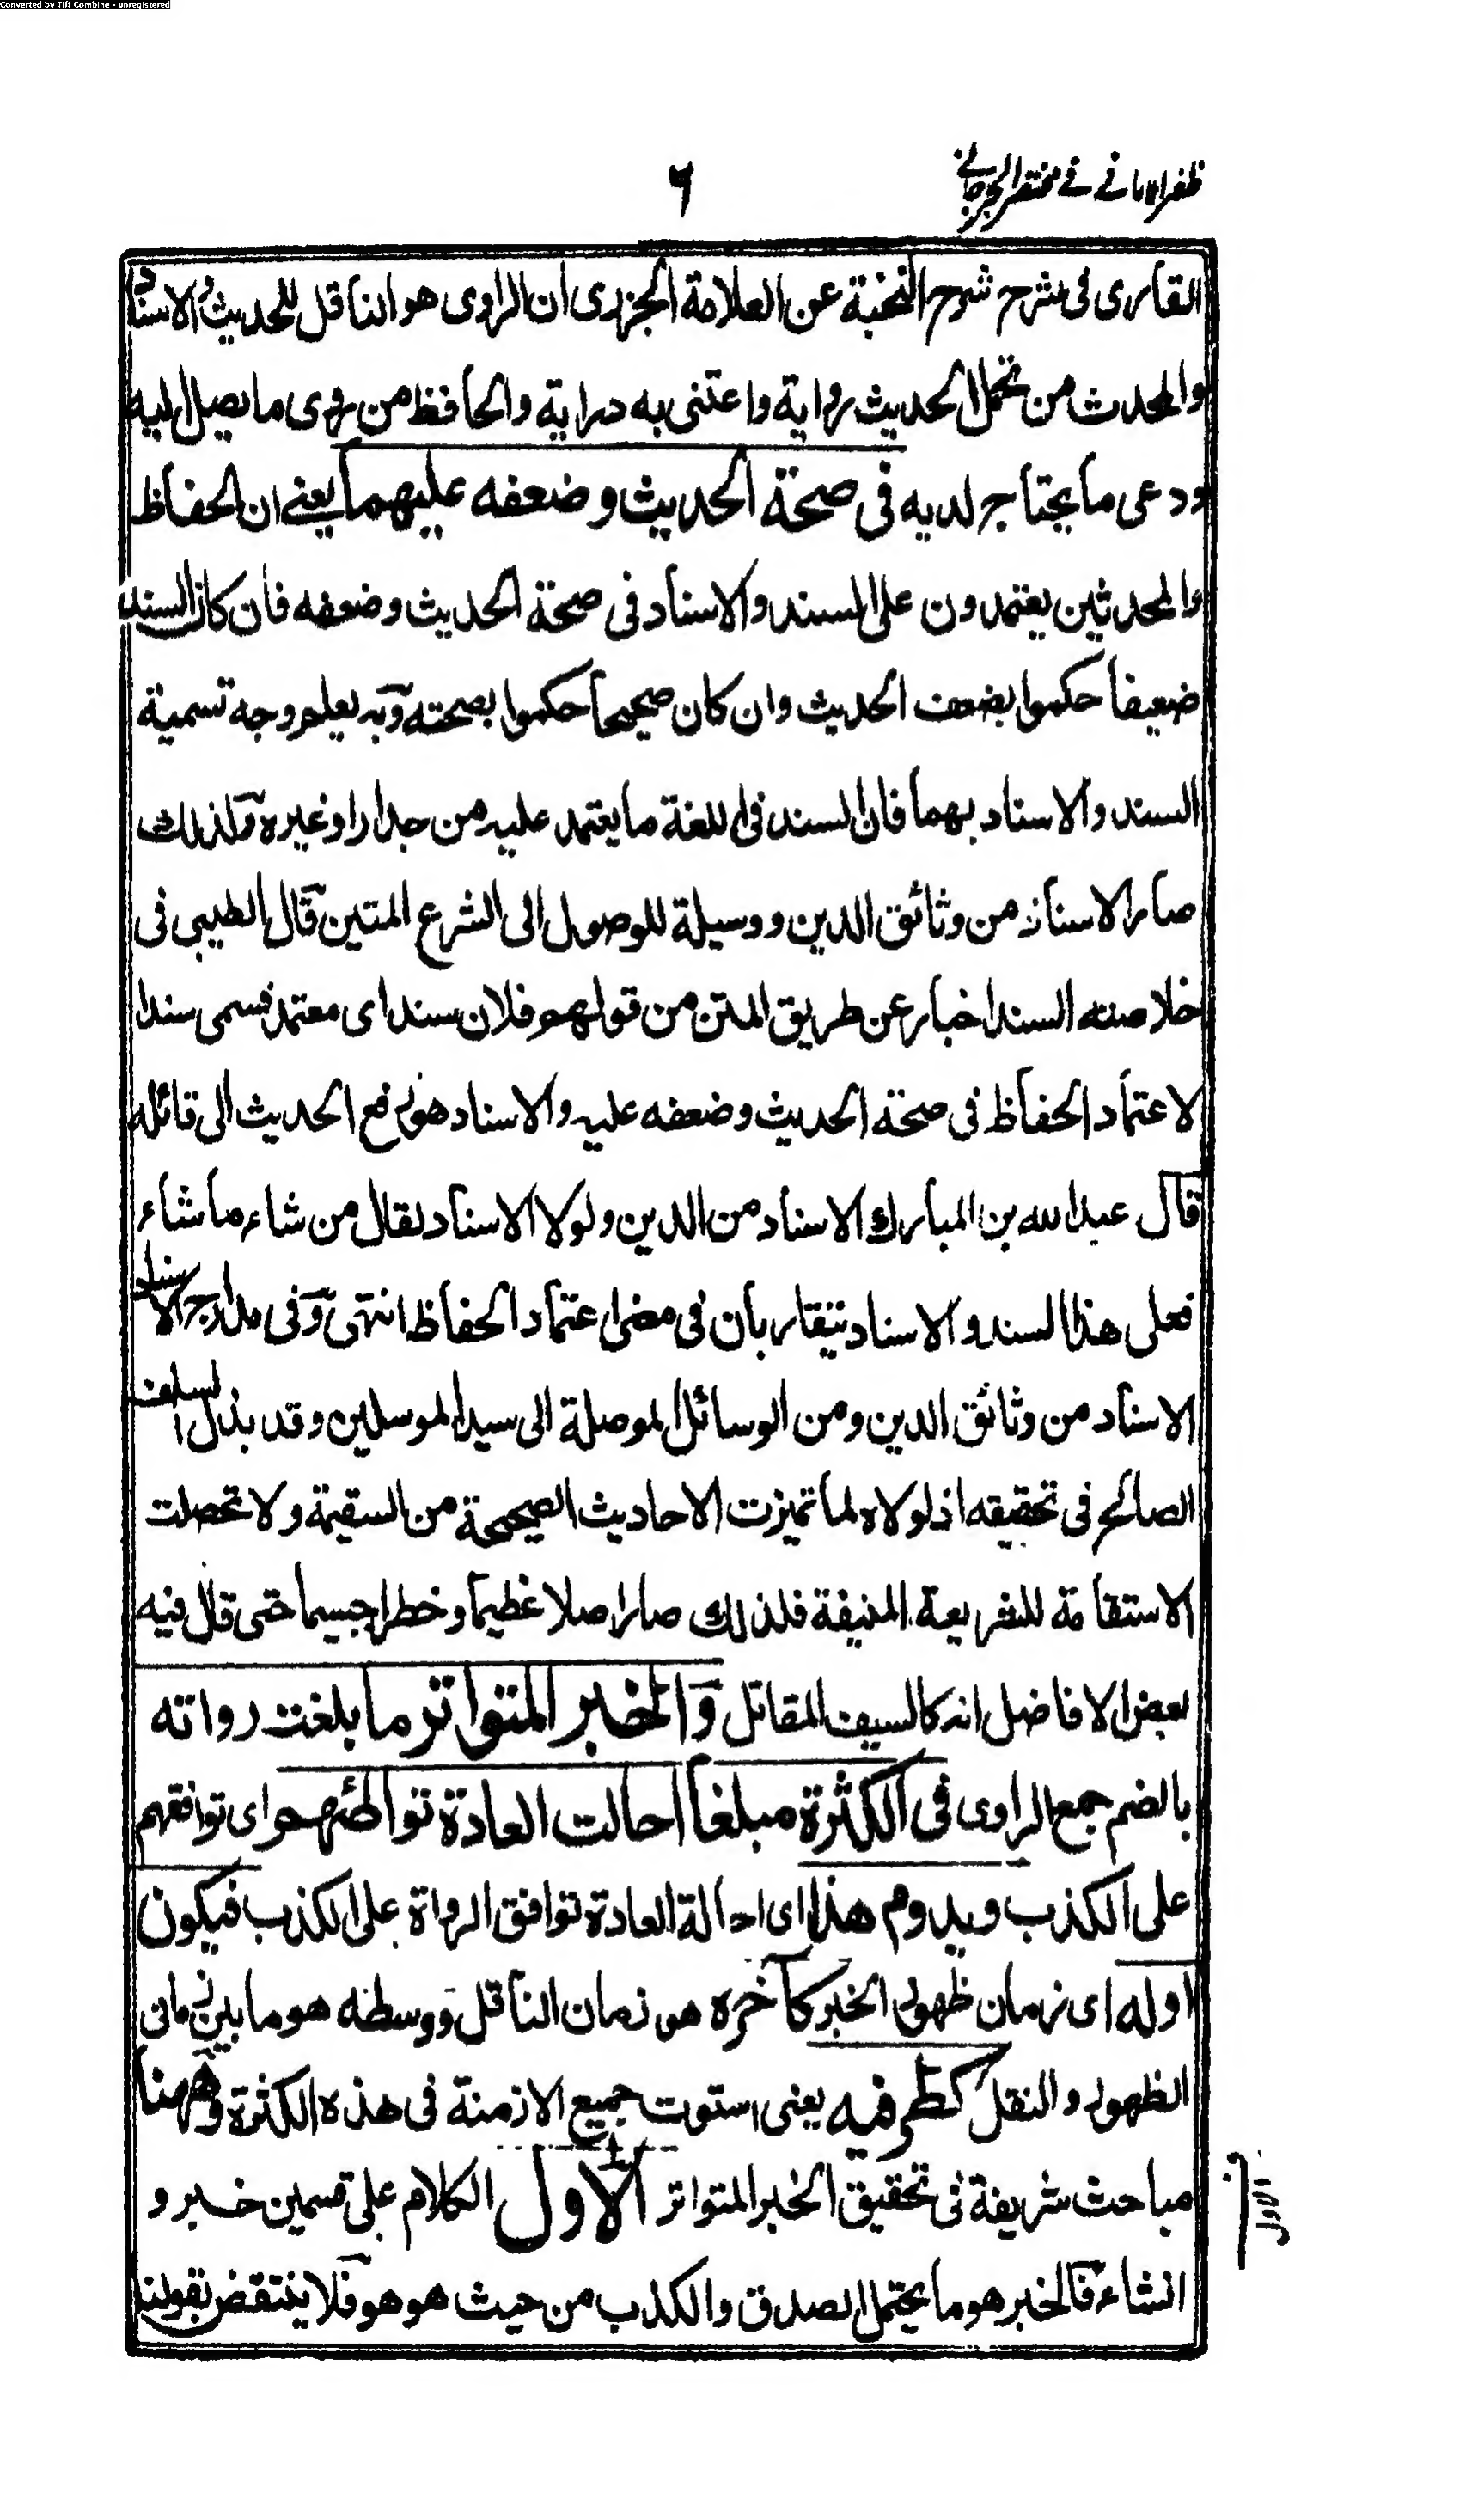 Converted by Tiff Combine - unregistered
ظفر الامانے فے مختصر الجرجانے
۶
القاری فی شرح شرح النخبة عن العلامة الجزری ان الراوی هو الناقل للحدیث والاسناد
والمحدث من تحمل الحدیث روایة واعتنی به درایة والحافظ من روی ما یصل الیه
ووعی ما یحتاج لدیه فی صحة الحدیث وضعفه علیهما یعنے ان الحفاظ
والمحدثین یعتمدون علی السند والاسناد فی صحة الحدیث وضعفه فان کان السند
ضعیفا حکموا بضعف الحدیث وان کان صحیحا حکموا بصحته وبه یعلم وجه تسمیة
السند والاسناد بهما فان السند فی اللغة ما یعتمد علیه من جدار او غیره ولذلك
صار الاسناد من وثائق الدین ووسیلة للوصول الی الشرع المتین قال الطیبی فی
خلاصته السند اخبار عن طریق المتن من قولهم فلان سند ای معتمد فسمی سندا
لاعتماد الحفاظ فی صحة الحدیث وضعفه علیه والاسناد هو رفع الحدیث الی قائله
قال عبد الله بن المبارك الاسناد من الدین ولولا الاسناد لقال من شاء ما شاء
فعلی هذا السند والاسناد یتقاربان فی معنی اعتماد الحفاظ انتهی وفی مدارج الاسناد
الاسناد من وثائق الدین ومن الوسائل الموصلة الی سید المرسلین وقد بذل السلف
الصالح فی تحقیقه اذ لولاه لما تمیزت الاحادیث الصحیحة من السقیمة ولا تحصلت
الاستقامة للشریعة المنیفة فلذلك صار اصلا عظیما وخطرا جسیما حتی قال فیه
بعض الافاضل انه کالسیف للمقاتل والخبر المتواتر ما بلغت رواته
بالضم جمع الراوی فی الکثرة مبلغا احالت العادة تواطئهم ای توافقهم
علی الکذب ویدوم هذا ای احالة العادة توافق الرواة علی الکذب فیکون
اوله ای زمان ظهور الخبر کآخره هو زمان الناقل ووسطه هو ما بین زمانی
الظهور والنقل کطرفیه یعنی استوت جمیع الازمنة فی هذه الکثرة وههنا
مباحث شریفة فی تحقیق الخبر المتواتر الاول الکلام علی قسمین خبر و
انشاء فالخبر هو ما یحتمل الصدق والکذب من حیث هو هو فلا ینتقض بقولنا